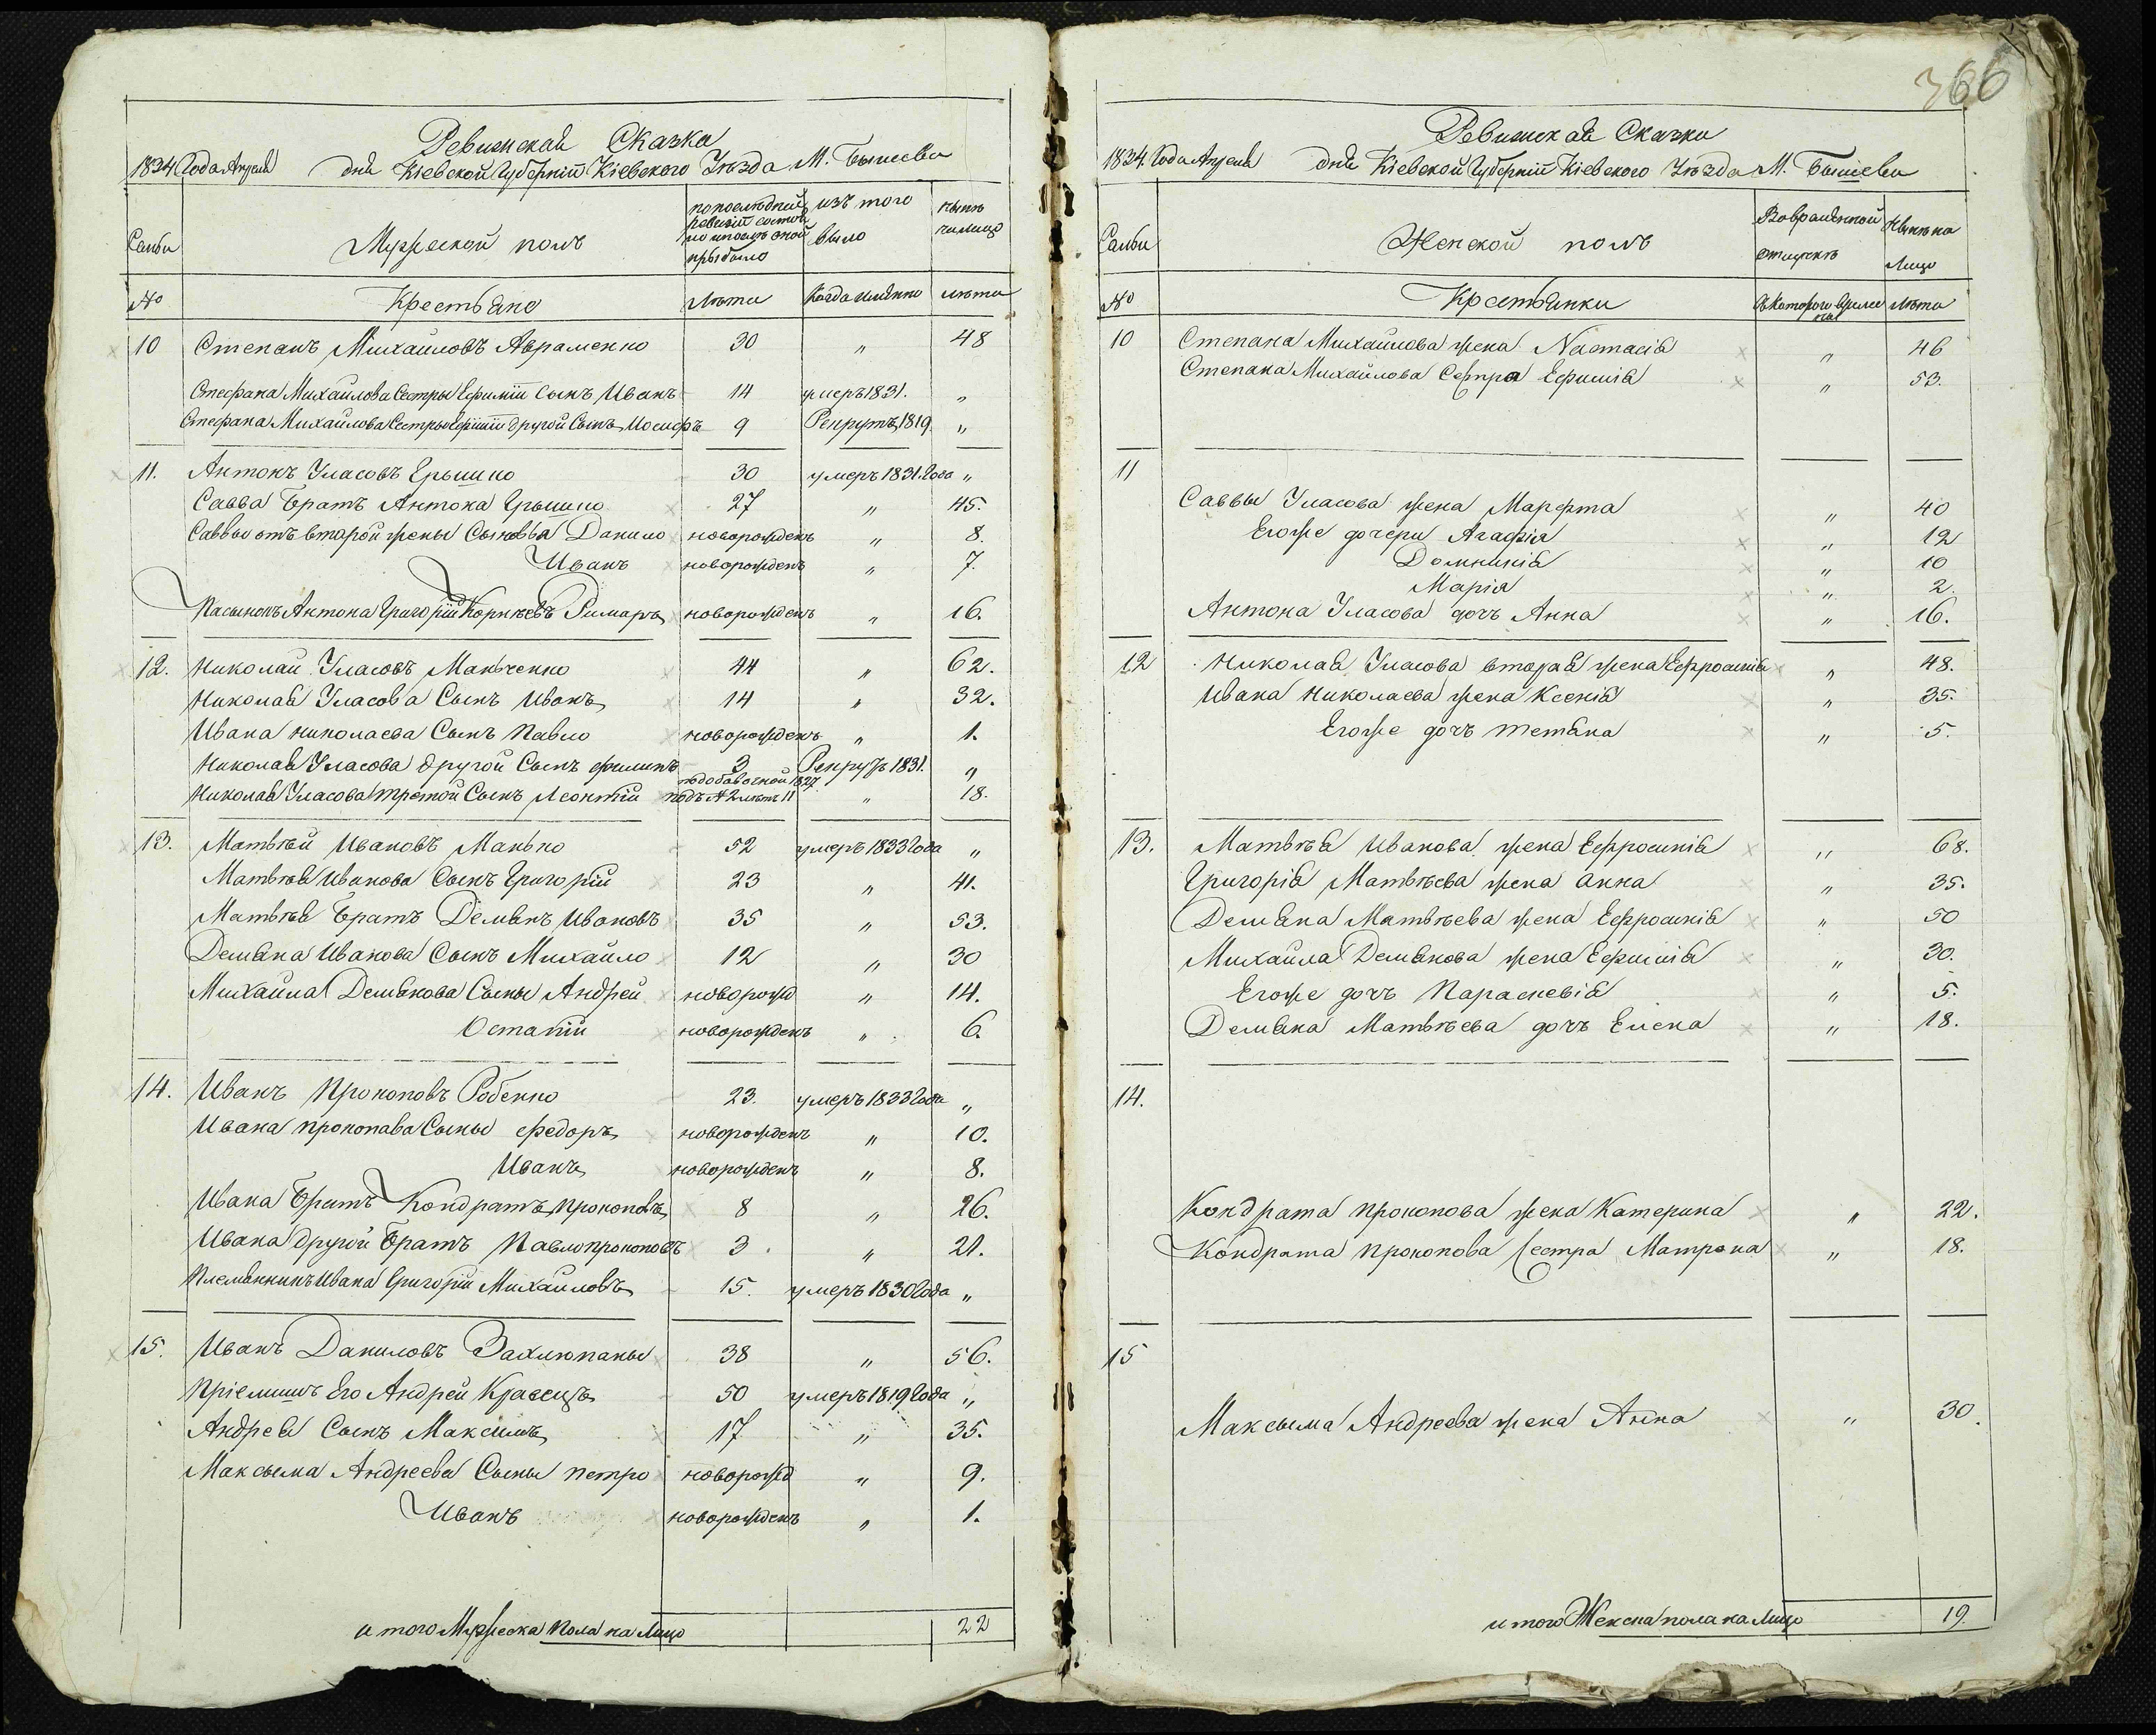 366
Ревизская Сказка
1834 Года Апреля дня Кіевской Губерніи Кіевского Уезда М. Бышева
Семьи
Мужеской полъ
по последней ревизіи состояло и после оной прыбыло
изъ того было
ныне на лицо
№
Крестьяне
Лета
Когда именно
лета
10 Степанъ Михайловъ Авраменко 30 " 48
Стефана Михайлова Сестры Ефиміи Сынъ Иванъ 14 умеръ 1831. "
Стефана Михайлова Сестры Ефиміи другой Сынъ Иосифъ 9 Рекрутъ 1819. "
11. Антонъ Уласовъ Ерышко 30 умеръ 1831. Года "
Савва Братъ Антона Ерышко 27 " 45.
Саввы отъ второй жены Сыновья Данило новорожденъ " 8.
Иванъ новорожденъ " 7.
Пасынокъ Антона Григорій Корнеевъ Римаръ новорожденъ " 16.
12. Николай Уласовъ Манченко 44 " 62.
Николая Уласова Сынъ Иванъ 14 " 32.
Ивана Николаева Сынъ Павло новорожденъ " 1.
Николая Уласова другой Сынъ Филипъ 3 Рекрутъ 1831. "
Николая Уласова третой Сынъ Леонтій по добавочной 1827 подъ № 2 летъ 11 " 18.
13. Матвей Ивановъ Манько 52 умеръ 1833 Года "
Матвея Иванова Сынъ Григорій 23 " 41.
Матвея Братъ Демянъ Ивановъ 35 " 53.
Демяна Иванова Сынъ Михайло 12 " 30
Михайла Демянова Сыны Андрей новорожд " 14.
Остапій новорожденъ " 6.
14. Иванъ Прокоповъ Робенко 23. умеръ 1833 Года "
Ивана Прокопава Сыны Федоръ новорожденъ " 10.
Иванъ новорожденъ " 8.
Ивана Братъ Кондратъ Прокоповъ 8 " 26.
Ивана другой Братъ Павло Прокоповъ 3 " 21.
Племянникъ Ивана Григорій Михайловъ 15. умеръ 1830 Года "
15. Иванъ Даниловъ Захлюпаны 38 " 56.
Пріемишъ Его Андрей Кравецъ 50 умеръ 1819 Года "
Андрея Сынъ Максимъ 17 " 35.
Максыма Андреева Сыны Петро новорожд " 9.
Иванъ новорожденъ " 1.
и того Мужеска пола на Лицо 22
Ревизская Сказка
1834 Года Апреля дня Кіевской Губерніи Кіевского Уезда М. Бышева
Семьи
Женской полъ
Во временной отлучке
Ныне на Лицо
№
Крестьянки
Съ которого времены
лета
10 Степана Михайлова жена Настасія " 46
Степана Михайлова Сестра Ефимія " 53.
11
Саввы Уласова жена Марфта " 40
Егоже дочери Агафія " 12
Домникія " 10
Марія " 2.
Антона Уласова дочъ Анна " 16.
12 Николая Уласова вторая жена Ефросинія " 48.
Ивана Николаева жена Ксенія " 35.
Егоже дочъ Тетяна " 5.
13. Матвея Иванова жена Ефросинія " 68.
Григорія Матвеева жена Анна " 35.
Демяна Матвеева жена Ефросинія " 50
Михайла Демянова жена Ефимія " 30.
Егоже дочъ Параскевія " 5.
Демяна Матвеева дочъ Елена " 18.
14.
Кондрата Прокопова жена Катерина " 22.
Кондрата Прокопова Сестра Матрона " 18.
15
Максыма Андреева жена Анна " 30.
и того Женска пола на Лицо 19.